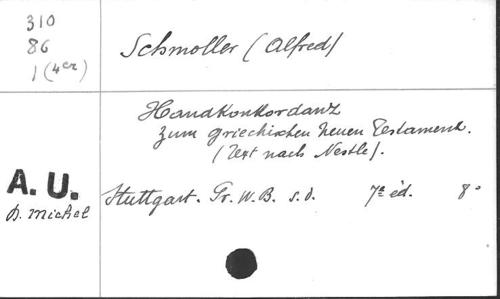 310
86
1 (4er)
Schmoller (Alfred)
Handkonkordanz
zum griechischen Neuen Testament.
(Text nach Nestle).
A. U.
D. Michel
Stuttgart. Pr. W. B. s. d. 7e éd. 8°